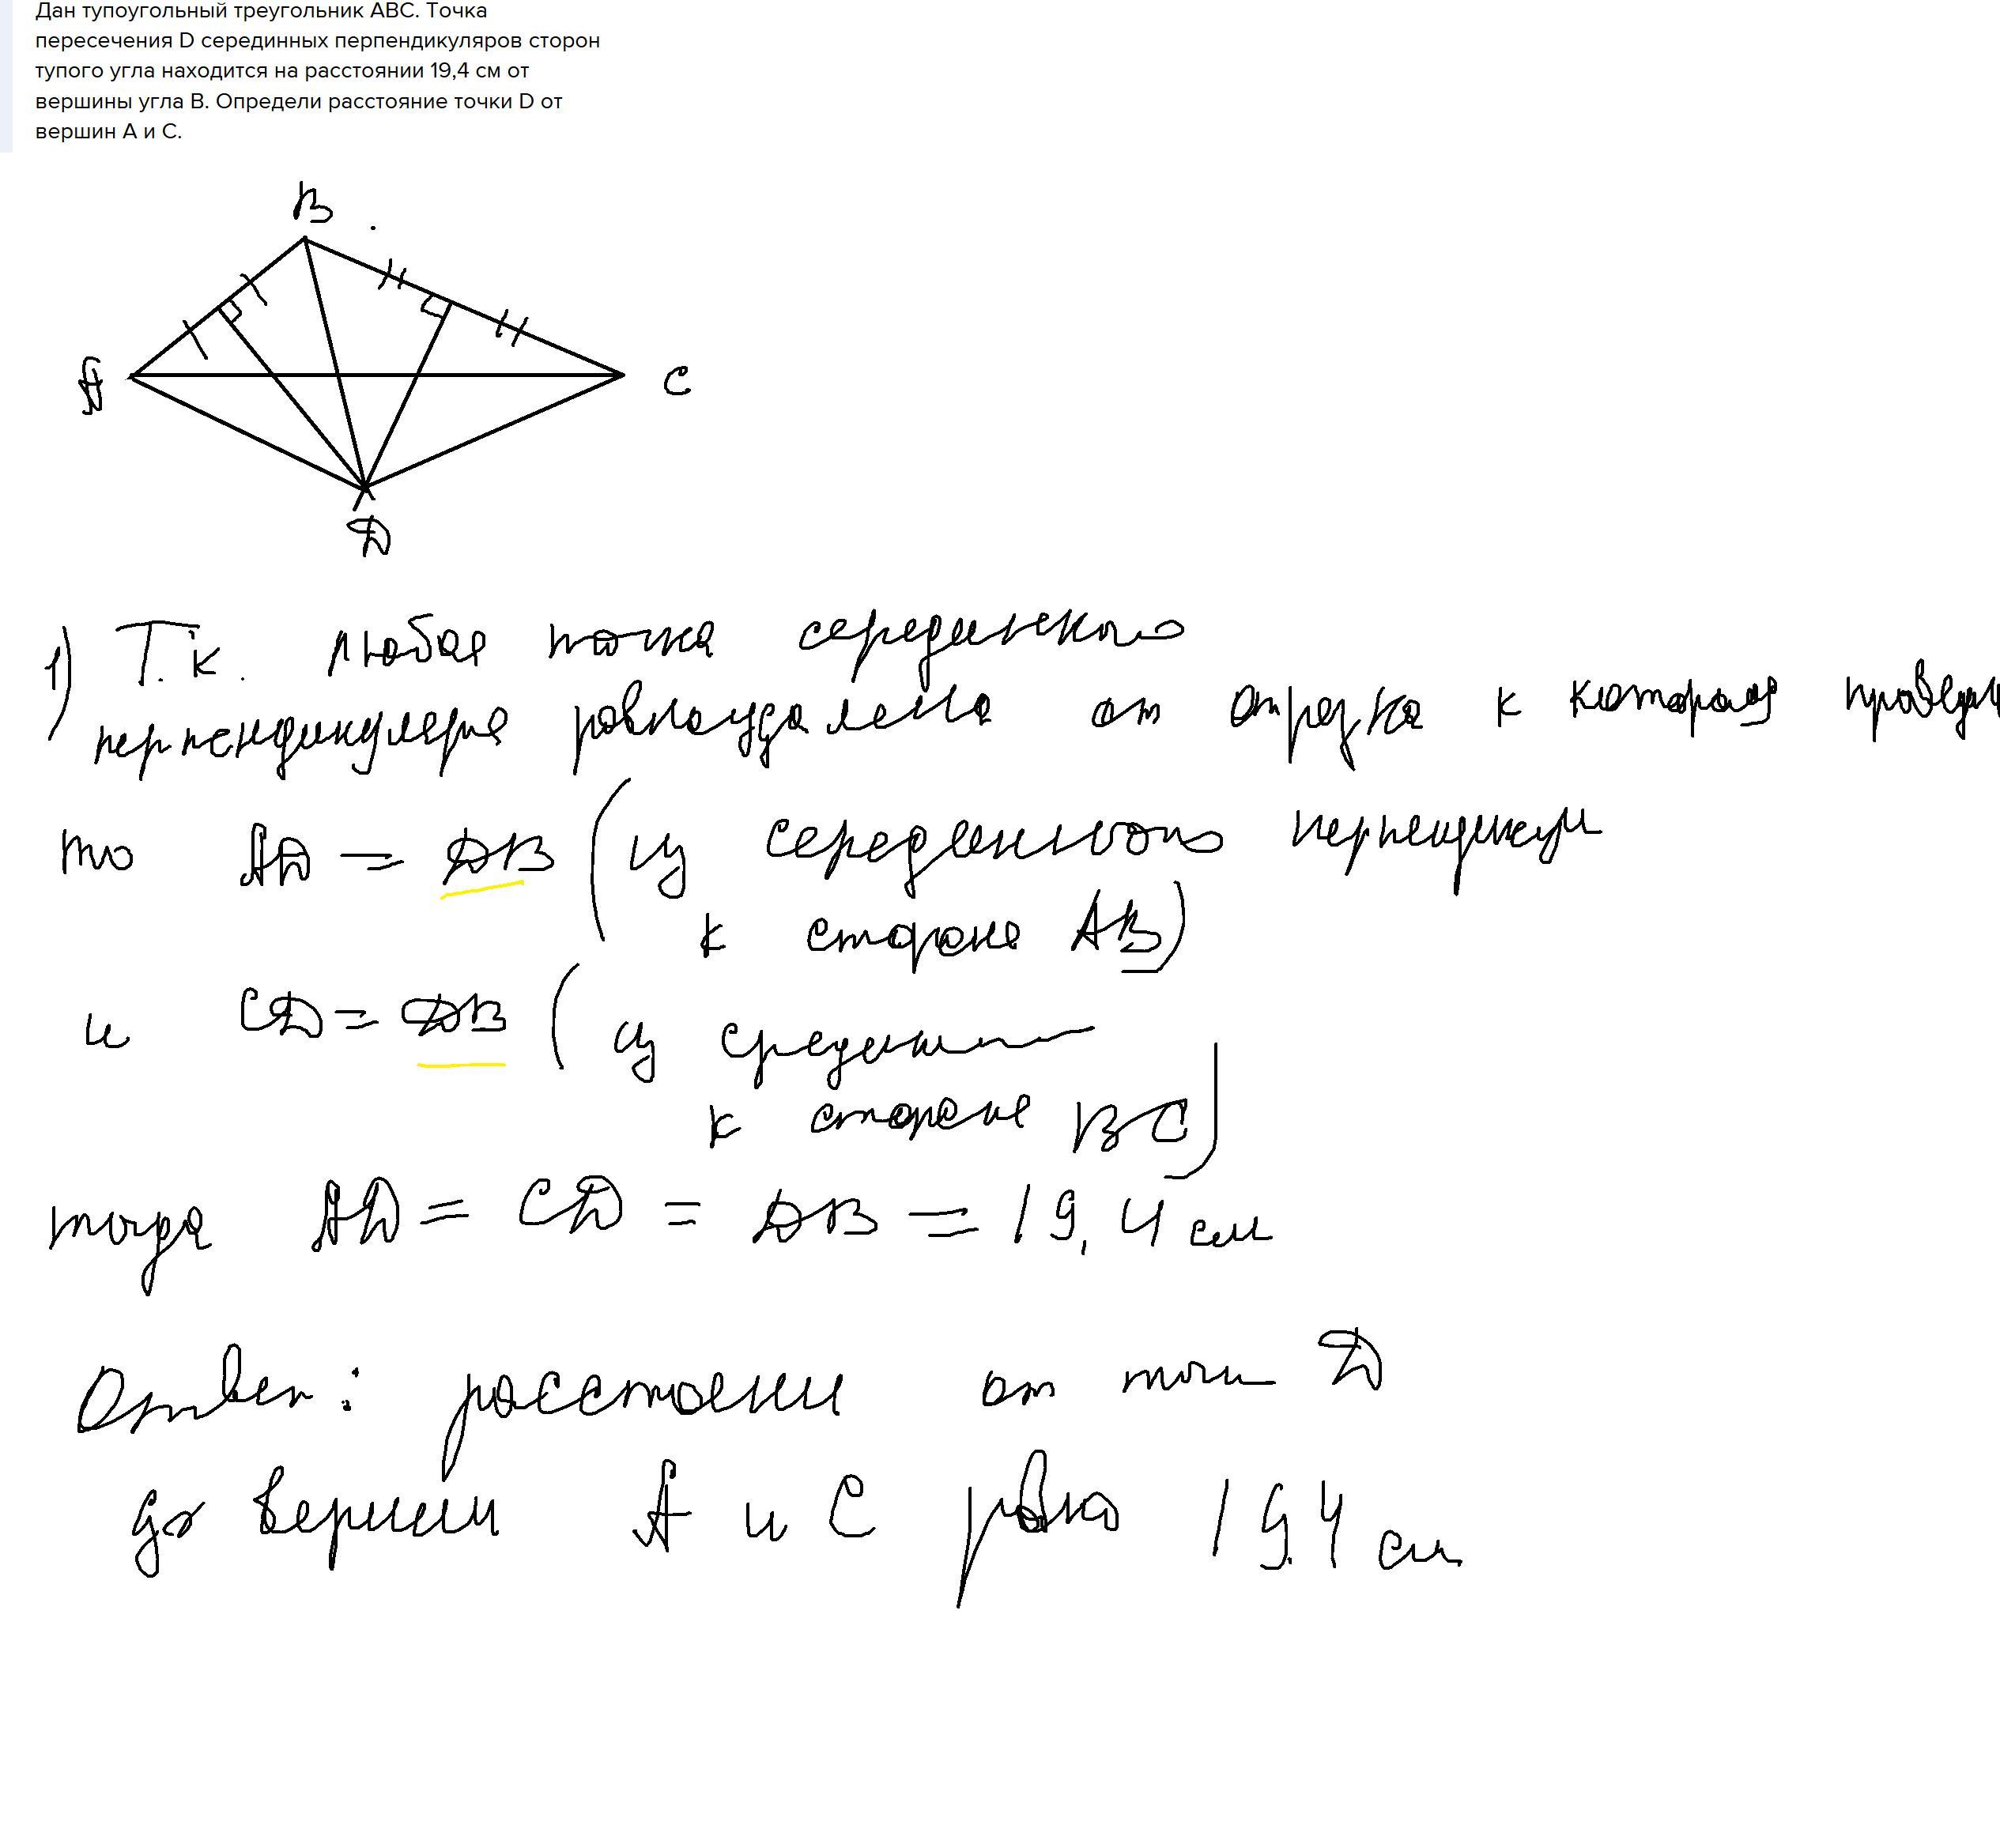 Дан тупоугольный треугольник ABC. Точка
пересечения D серединных перпендикуляров сторон
тупого угла находится на расстоянии 19,4 см от
вершины угла B. Определи расстояние точки D от
вершин A и C.
B
A
C
D
1) Т.к. любая точка серединного
перпендикуляра равноудалена от отрезка к которому провед
то AD = DB (из серединного перпендикул
к стороне AB)
и CD = DB (из
к стороне BC)
тогда AD = CD = DB = 19,4 см
Ответ: расстояни от точки D
до вершин A и C равно 19.4 см